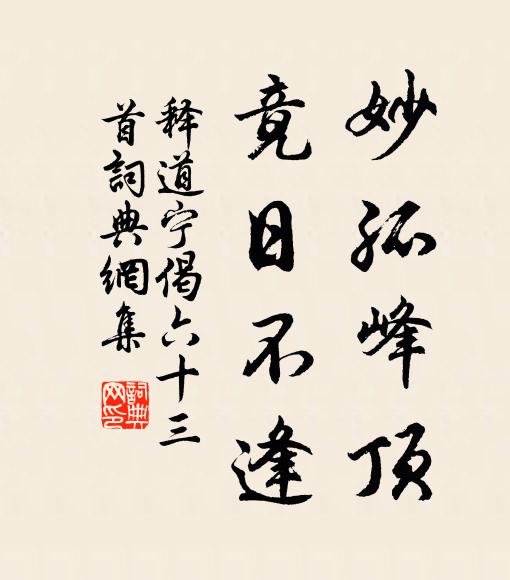 妙孤峰顶
竟日不逢
释道宁偈六十三
首詞典網集
詞典
网印